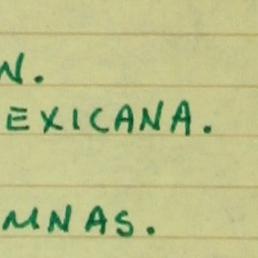 N.
EXICANA.
MNAS.